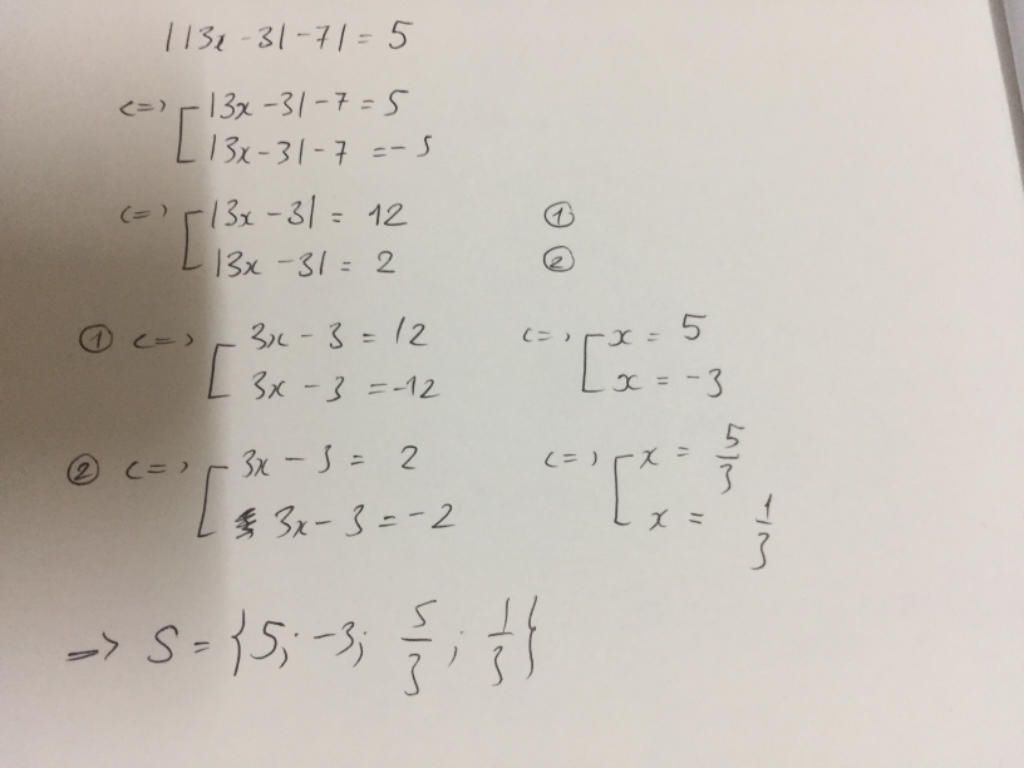 ||3x - 3| - 7| = 5
<=> [ |3x - 3| - 7 = 5
|3x - 3| - 7 = - 5
<=> [ |3x - 3| = 12 ①
|3x - 3| = 2 ②
① <=> [ 3x - 3 = 12 <=> [ x = 5
3x - 3 = -12 x = -3
② <=> [ 3x - 3 = 2 <=> [ x = 5/3
3x - 3 = -2 x = 1/3
=> S = {5; -3; 5/3; 1/3}